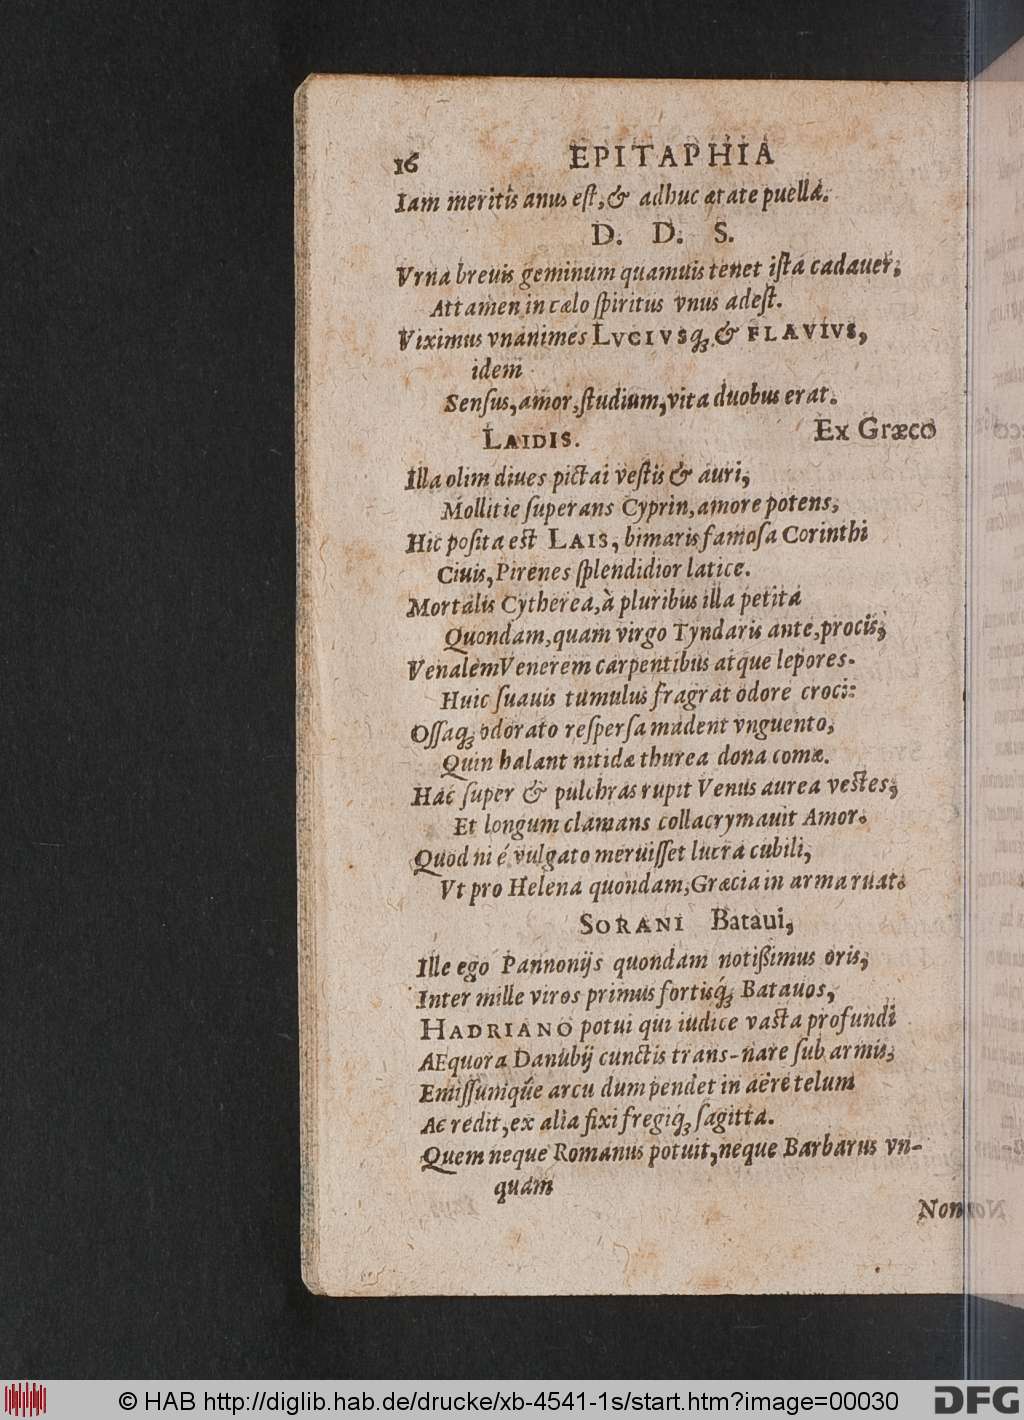 16 EPITAPHIA
Iam meritis anus eſt, & adhuc ætate puella.
D. D. S.
Vrna breuis geminum quamuis tenet iſta cadauer,
Attamen in cælo ſpiritus vnus adeſt.
Viximus vnanimes LVCIVSq́ꝫ & FLAVIVS,
idem
Senſus, amor, ſtudium, vita duobus erat.
LAIDIS. Ex Græco
Illa olim diues pictai veſtis & auri,
Mollitie ſuperans Cyprin, amore potens,
Hic poſita eſt LAIS, bimaris famoſa Corinthi
Ciuis, Pirenes ſplendidior latice.
Mortalis Cytherea, à pluribus illa petita
Quondam, quam virgo Tyndaris ante, procis,
Venalem Venerem carpentibus atque lepores.
Huic ſuauis tumulus fragrat odore croci:
Oſſaqꝫ odorato reſperſa madent vnguento,
Quin halant nitidæ thurea dona comæ.
Hac ſuper & pulchras rupit Venus aurea veſtes,
Et longum clamans collacrymauit Amor.
Quod ni é vulgato meruiſſet lucra cubili,
Vt pro Helena quondam, Græcia in arma ruat.
SORANI Bataui,
Ille ego Pannonijs quondam notißimus oris,
Inter mille viros primus fortisq́ꝫ Batavos,
HADRIANO potui qui iudice vaſta profundi
AEquora Danubij cunctis trans-nare ſub armis,
Emiſſumiq́ue arcu dum pendet in aëre telum
Ac redit, ex alia fixi fregiqꝫ ſagitta.
Quem neque Romanus potuit, neque Barbarus vn-
quam
Non
© HAB http://diglib.hab.de/drucke/xb-4541-1s/start.htm?image=00030
DFG